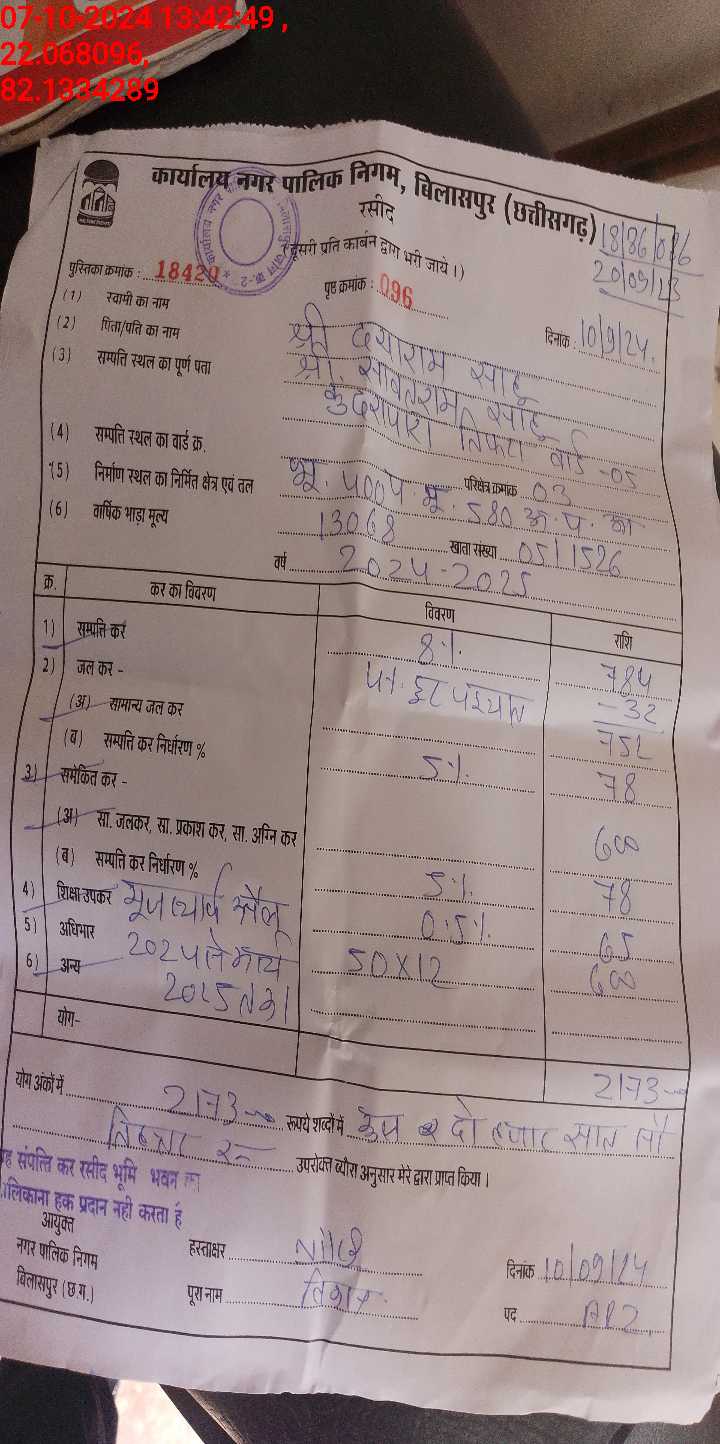 07-10-2024 13:42:49,
22.068096,
82.1334289
कार्यालय नगर पालिक निगम, बिलासपुर (छत्तीसगढ़)
रसीद
18/86/096
20/09/23
(दूसरी प्रति कार्बन द्वारा भरी जाये।)
पुस्तिका क्रमांक : 18429
पृष्ठ क्रमांक : 096
दिनांक 10/9/24.
(1) स्वामी का नाम श्री दयाराम साहू
(2) पिता/पति का नाम श्री. साहू
(3) सम्पति स्थल का पूर्ण पता कुदरापारा तिफरा वार्ड -05
(4) सम्पत्ति स्थल का वार्ड क्र.
परिक्षेत्र क्रमांक 03
(5) निर्माण स्थल का निर्मित क्षेत्र एवं तल भू. 580
(6) वार्षिक भाड़ा मूल्य 13068 खाता संख्या 05/1526
वर्ष 2024-2025
क्र. कर का विवरण विवरण राशि
1) सम्पत्ति कर 8% 784
2) जल कर - -32
(अ) सामान्य जल कर 752
(ब) सम्पत्ति कर निर्धारण % 5% 78
3) समेकित कर -
(अ) सा. जलकर, सा. प्रकाश कर, सा. अग्नि कर 600
(ब) सम्पत्ति कर निर्धारण %
4) शिक्षा उपकर 5% 78
5) अधिभार 0.5% 65
6) अन्य 50X12 600
योग-
2173
योग अंकों में 2173 रूपये शब्दों में दो हजार
उपरोक्त ब्यौरा अनुसार मेरे द्वारा प्राप्त किया।
संपत्ति कर रसीद भूमि भवन का
मालिकाना हक प्रदान नही करता है
आयुक्त
नगर पालिक निगम
बिलासपुर (छ.ग.)
हस्ताक्षर
दिनांक 10/09/24
पूरा नाम
पद